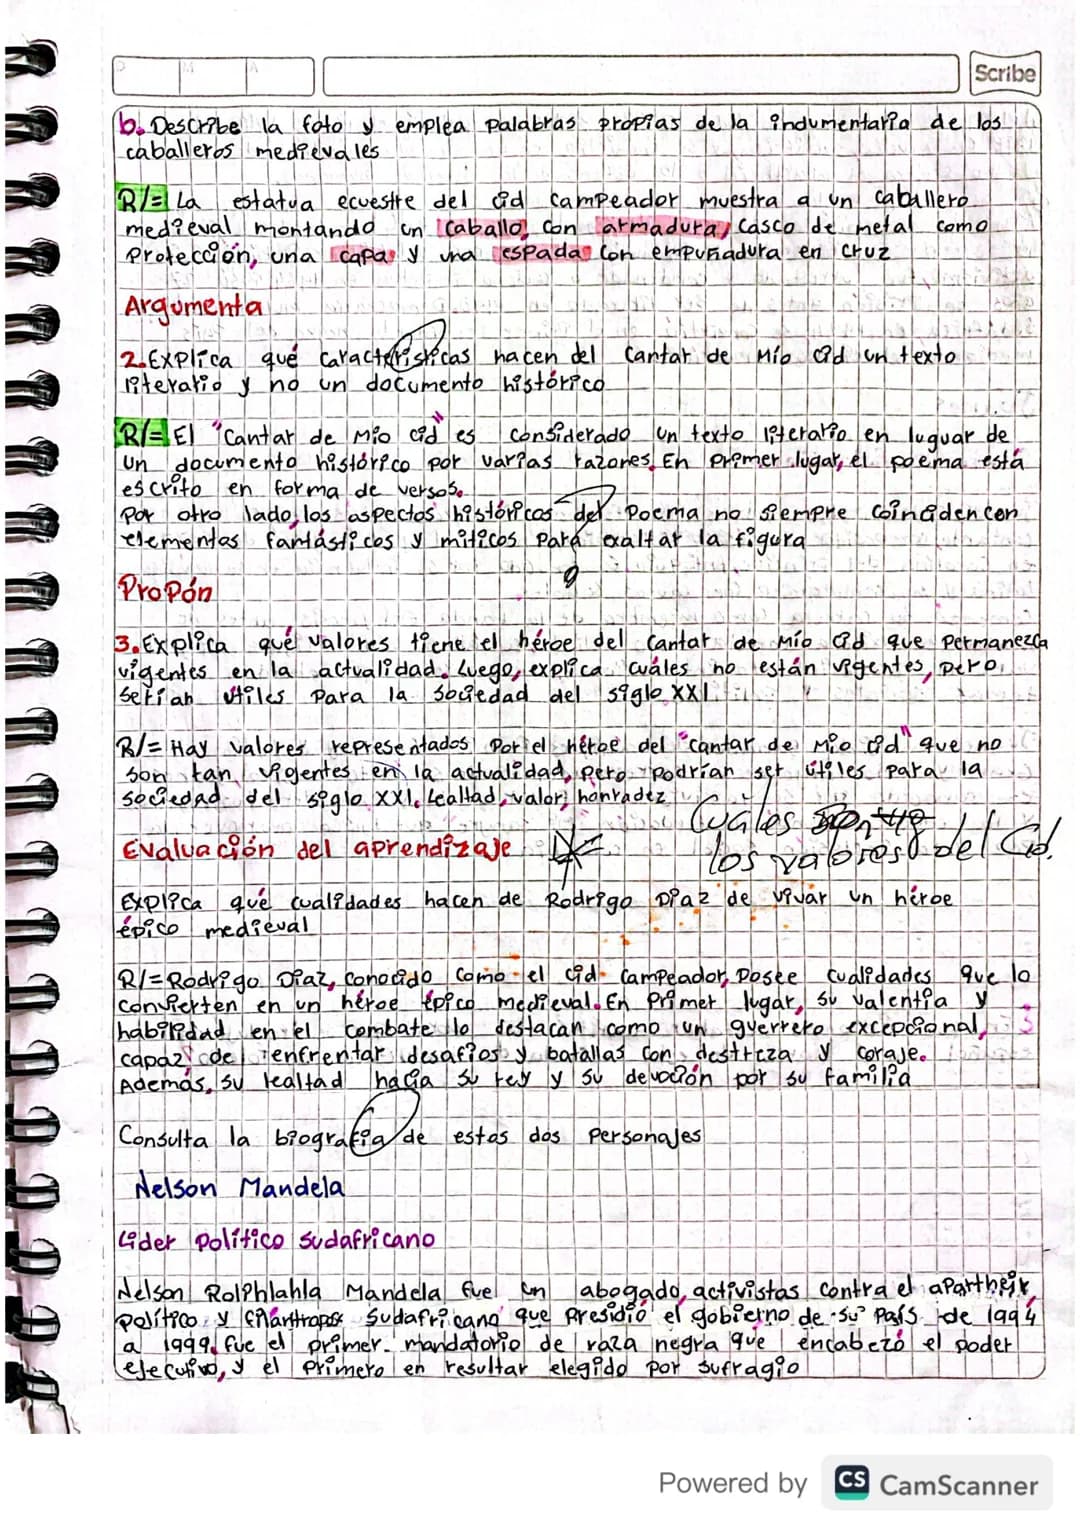 Scribe
b. Describe la foto y emplea palabras propias de la indumentaria de los
caballeros medievales
R/= La estatua ecuestre del cid campeador muestra a un caballero
medieval montando un caballo, con armadura, casco de metal como
Protección, una capa y una espada con empuñadura en cruz
Argumenta
2. Explica qué características hacen del Cantar de Mío cid un texto
literario y no un documento histórico
R/= El "Cantar de Mio cid" es considerado un texto literario en luguar de
un documento histórico por varias razones. En primer lugar, el poema está
escrito en forma de versos.
por otro lado, los aspectos históricos del poema no siempre coinciden con
elementos fantásticos y míticos para exaltar la figura
Propón
3. Explica qué valores tiene el héroe del Cantar de Mío cid que permanezca
vigentes en la actualidad. Luego, explica cuáles no están vigentes, pero
serian útiles para la sociedad del siglo XXI
R/= Hay valores representados por el héroe del "cantar de Mio cid" que no
son tan vigentes en la actualidad, pero podrían ser útiles para la
sociedad del siglo XXI. Lealtad, valor, honradez
Cuáles
los valores del Cid.
Evaluación del aprendizaje
Explica qué cualidades hacen de Rodrigo Diaz de vivar un héroe
épico medieval
R/= Rodrigo Diaz, conocido como el cid campeador, posee cualidades que lo
convierten en un héroe épico medieval. En primer lugar, su valentia y
habilidad en el combate lo destacan como un guerrero excepcional,
capaz de enfrentar desafios y batallas con destreza y coraje.
Además, su lealtad hacia su rey y su devoción por su familia
Consulta la biografia de estos dos personajes
Nelson Mandela
Lider político sudafricano
Nelson Rolphlahla Mandela fue un abogado, activistas contra el apartheir,
político y filántropo sudafricano que presidió el gobierno de su país de 1994
a 1999, fue el primer mandatorio de raza negra que encabezó el poder
ejecutivo, y el primero en resultar elegido por sufragio
Powered by CS CamScanner